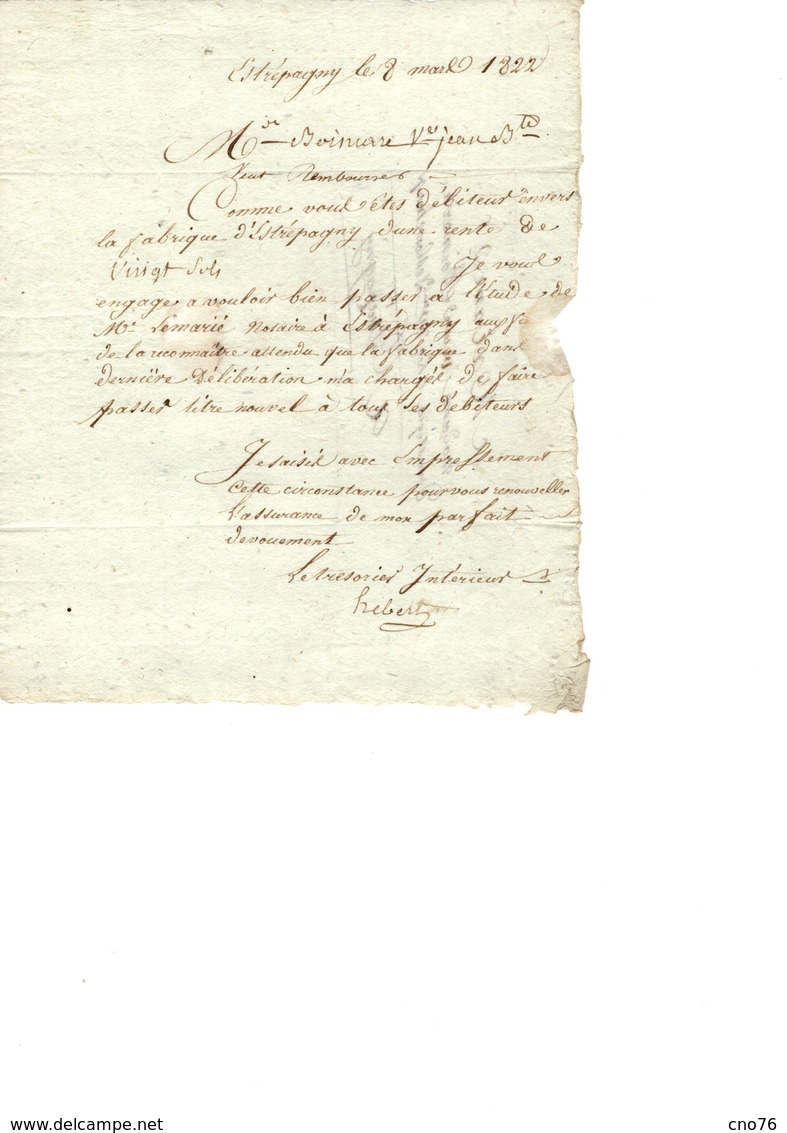 Estrépagny le 8 mars 1822
Mde Boimare Ve jean Bte
Veut Rembourser
Comme vous êtes débiteur envers
la fabrique d'Estrépagny dune rente de
Vingt Sols Je vous
engage a vouloir bien passer a l'étude de
Mr. Lemarié Notaire à Estrépagny aux
de la reconnaître attendu que la fabrique dans
dernière Délibération m'a chargés de faire
passer titre nouvel à tous ses débiteurs
Je saisis avec Empressement
Cette circonstance pour vous renouveller
l'assurance de mon parfait
devouement
Le tresorier Intérieur
hebert
www.delcampe.net
cno76